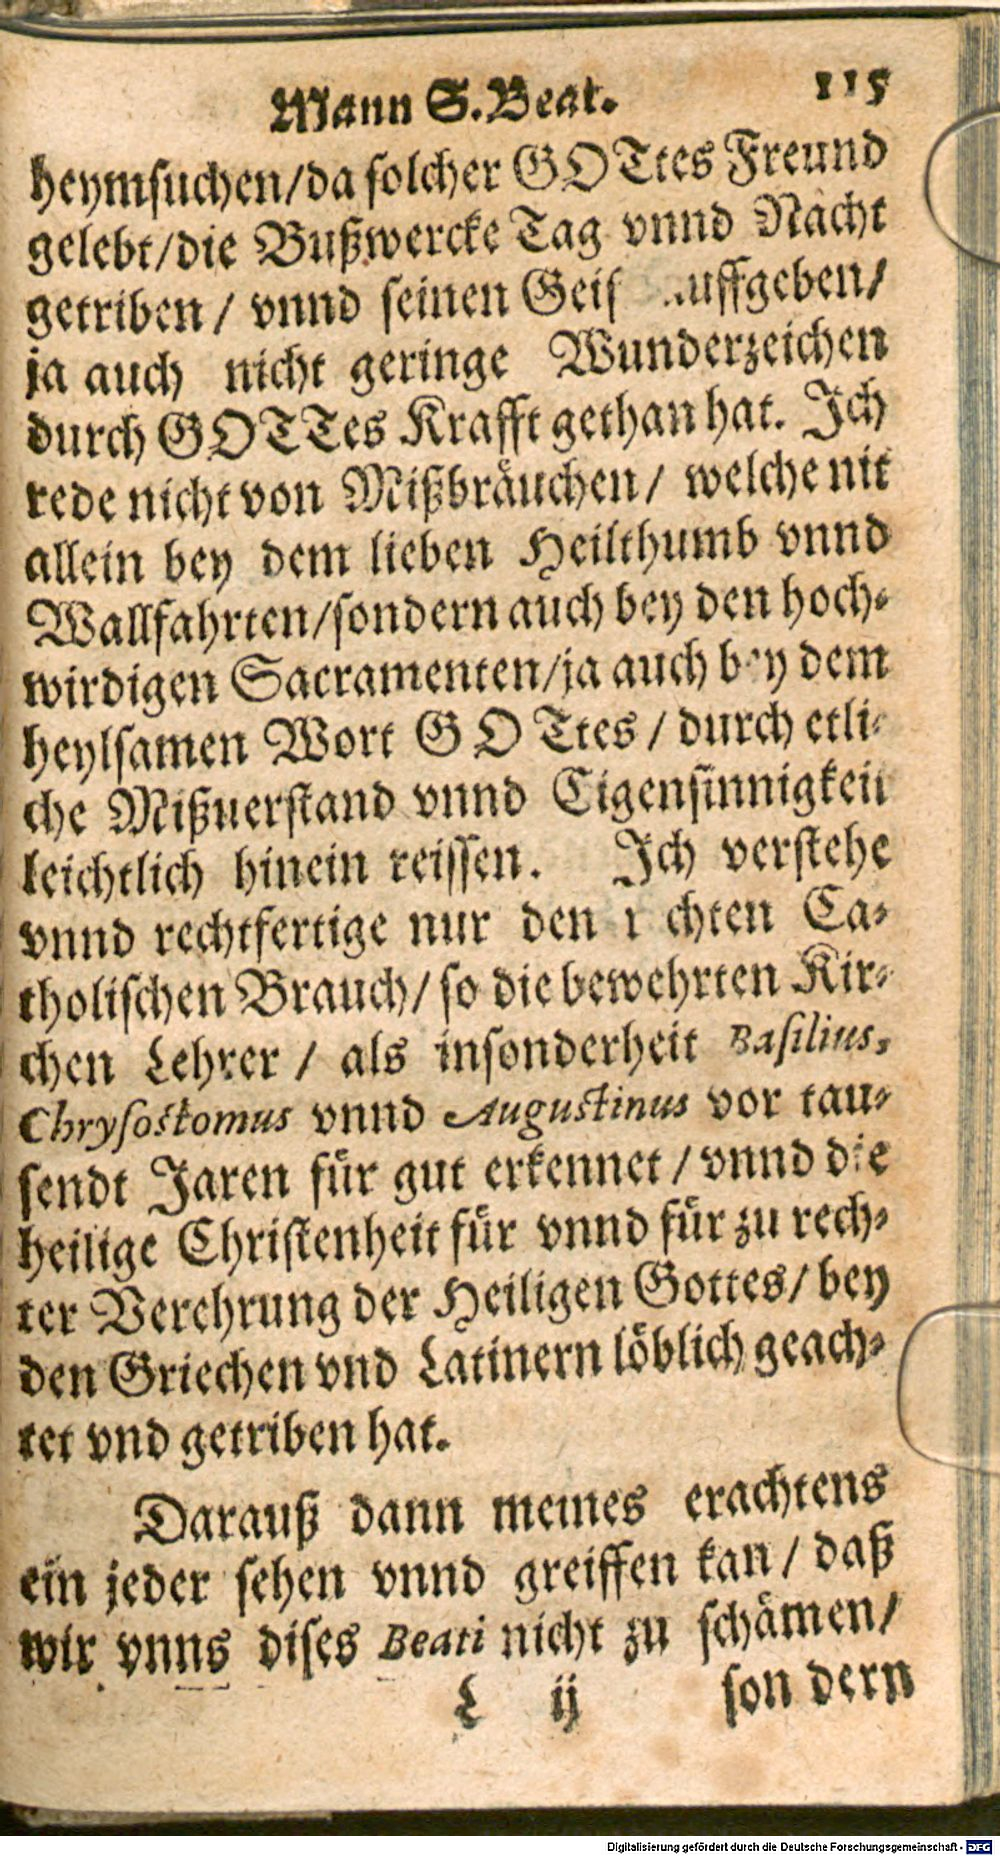 Mann S. Beat. 115
heymsuchen/da solcher GOTtes Freund
gelebt/die Bußwercke Tag vnnd Nacht
getriben / vnnd seinen Geis uffgeben/
ja auch nicht geringe Wunderzeichen
durch GOTTes Krafft gethan hat. Ich
rede nicht von Mißbräuchen/ welche nit
allein bey dem lieben Heilthumb vnnd
Wallfahrten/sondern auch bey den hoch-
wirdigen Sacramenten/ja auch bey dem
heylsamen Wort GOTtes / durch etli-
che Mißuerstand vnnd Eigensinnigkeit
leichtlich hinein reissen. Ich verstehe
vnnd rechtfertige nur den r chten Ca-
tholischen Brauch/ so die bewehrten Kir-
chen Lehrer / als insonderheit Basilius,
Chrysostomus vnnd Augustinus vor tau-
sendt Jaren für gut erkennet / vnnd die
heilige Christenheit für vnnd für zu rech-
ter Verehrung der Heiligen Gottes/ bey
den Griechen vnd Latinern löblich geach-
tet vnd getriben hat.
Darauß dann meines erachtens
ein jeder sehen vnnd greiffen kan / daß
wir vnns dises Beati nicht zu schämen/
L ij son dern
Digitalisierung gefördert durch die Deutsche Forschungsgemeinschaft - DFG